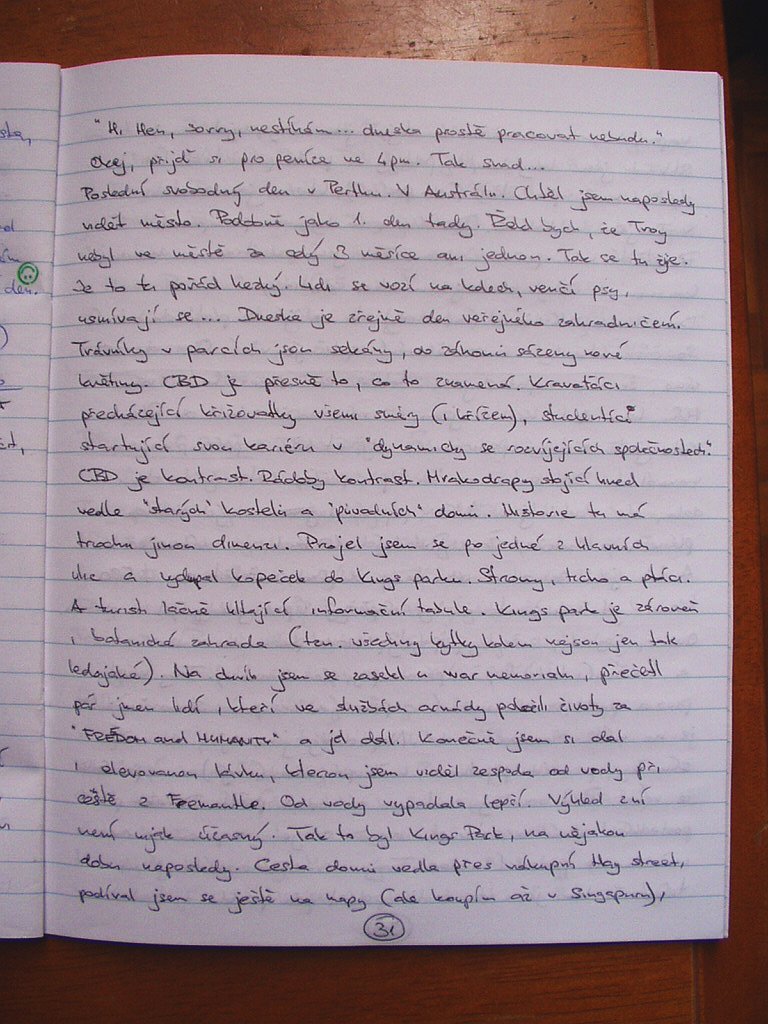 "Hi Hen, sorry, nestíhám... dneska prostě pracovat nebudu."
Okej, přijď si pro peníze ve 4pm. Tak snad...
Poslední svobodný den v Perthu. V Austrálii. Chtěl jsem naposledy
vidět město. Podobně jako 1. den tady. Řekl bych, že Troy
nebyl ve městě za celý 3 měsíce ani jednou. Tak se tu žije.
Je to tu pořád hezký. Lidi se vozí na kolech, venčí psy,
usmívají se... Dneska je zřejmě den veřejného zahradničení.
Trávníky v parcích jsou sekány, do záhonů sázeny nové
květiny. CBD je přesně to, co to znamená. Kravaťáci
přecházející křižovatky všemi směry (i křížem), studentíci
startující svou kariéru v "dynamicky se rozvíjejících společnostech".
CBD je kontrast. Rádoby kontrast. Mrakodrapy stojící hned
vedle "starých" kostelů a "původních" domů. Historie tu má
trochu jinou dimenzi. Projel jsem se po jedné z hlavních
ulic a vydupal kopeček do Kings parku. Stromy, ticho a ptáci.
A turisti lačně hltající informační tabule. Kings park je zároveň
i botanická zahrada (tzn. všechny kytky kolem nejsou jen tak
ledajaké). Na chvíli jsem se zasekl u war memorialu, přečetl
pár jmen lidí, kteří ve službách armády položili životy za
"FREEDOM and HUMANITY" a jel dál. Konečně jsem si dal
i elevovanou lávku, kterou jsem viděl zespoda od vody při
cestě z Freemantle. Od vody vypadala lepší. Výhled z ní
není nijak úžasný. Tak to byl Kings Park, na nějakou
dobu naposledy. Cesta domů vedla přes nákupní Hay street,
podíval jsem se ještě na mapy (ale koupím až v Singapuru),
31
den.